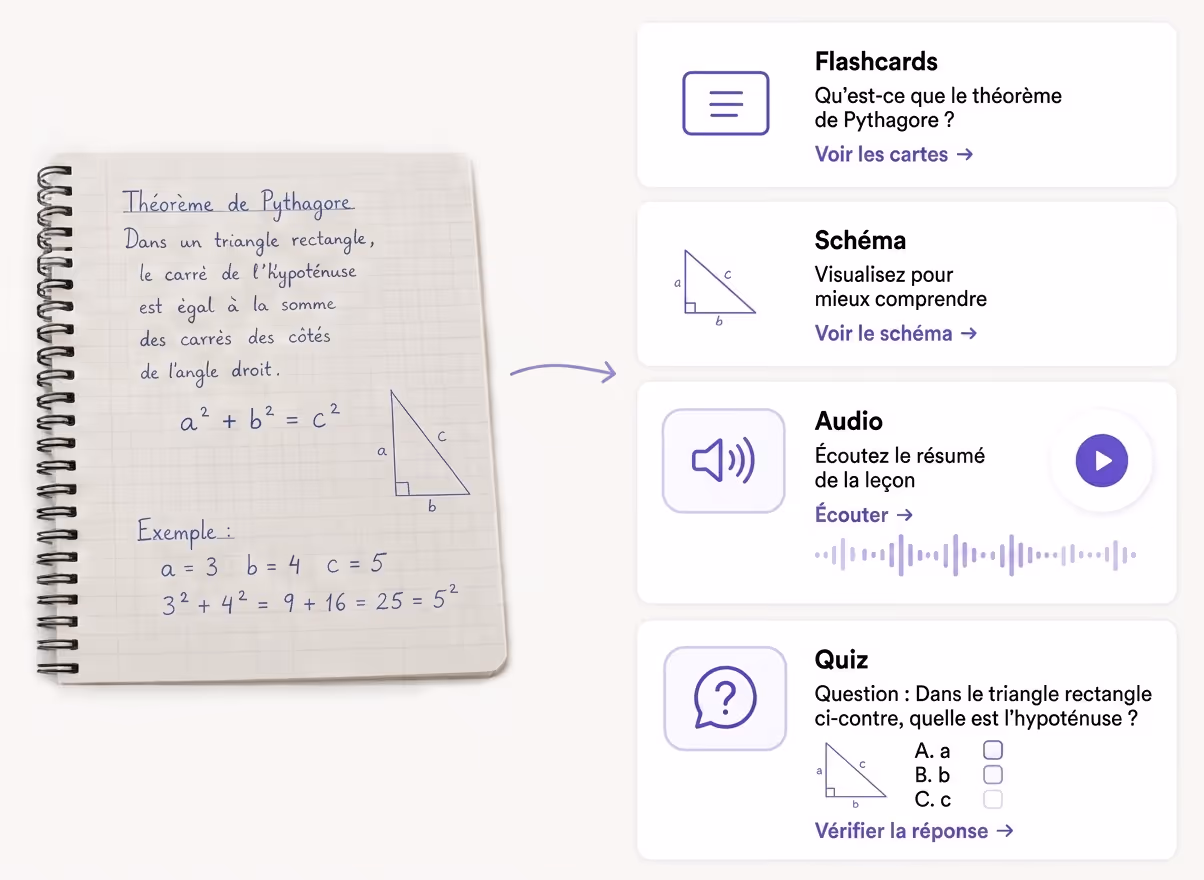 Théorème de Pythagore
Dans un triangle rectangle,
le carrè de l'hypoténuse
est ègal à la somme
des carrès des côtés
de l'angle droit.
a² + b² = c²
a
c
b
Exemple :
a = 3 b = 4 c = 5
3² + 4² = 9 + 16 = 25 = 5²
Flashcards
Qu'est-ce que le théorème
de Pythagore ?
Voir les cartes →
Schéma
Visualisez pour
mieux comprendre
Voir le schéma →
a
c
b
Audio
Écoutez le résumé
de la leçon
Écouter →
Quiz
Question : Dans le triangle rectangle
ci-contre, quelle est l'hypoténuse ?
a
c
b
A. a
B. b
C. c
Vérifier la réponse →